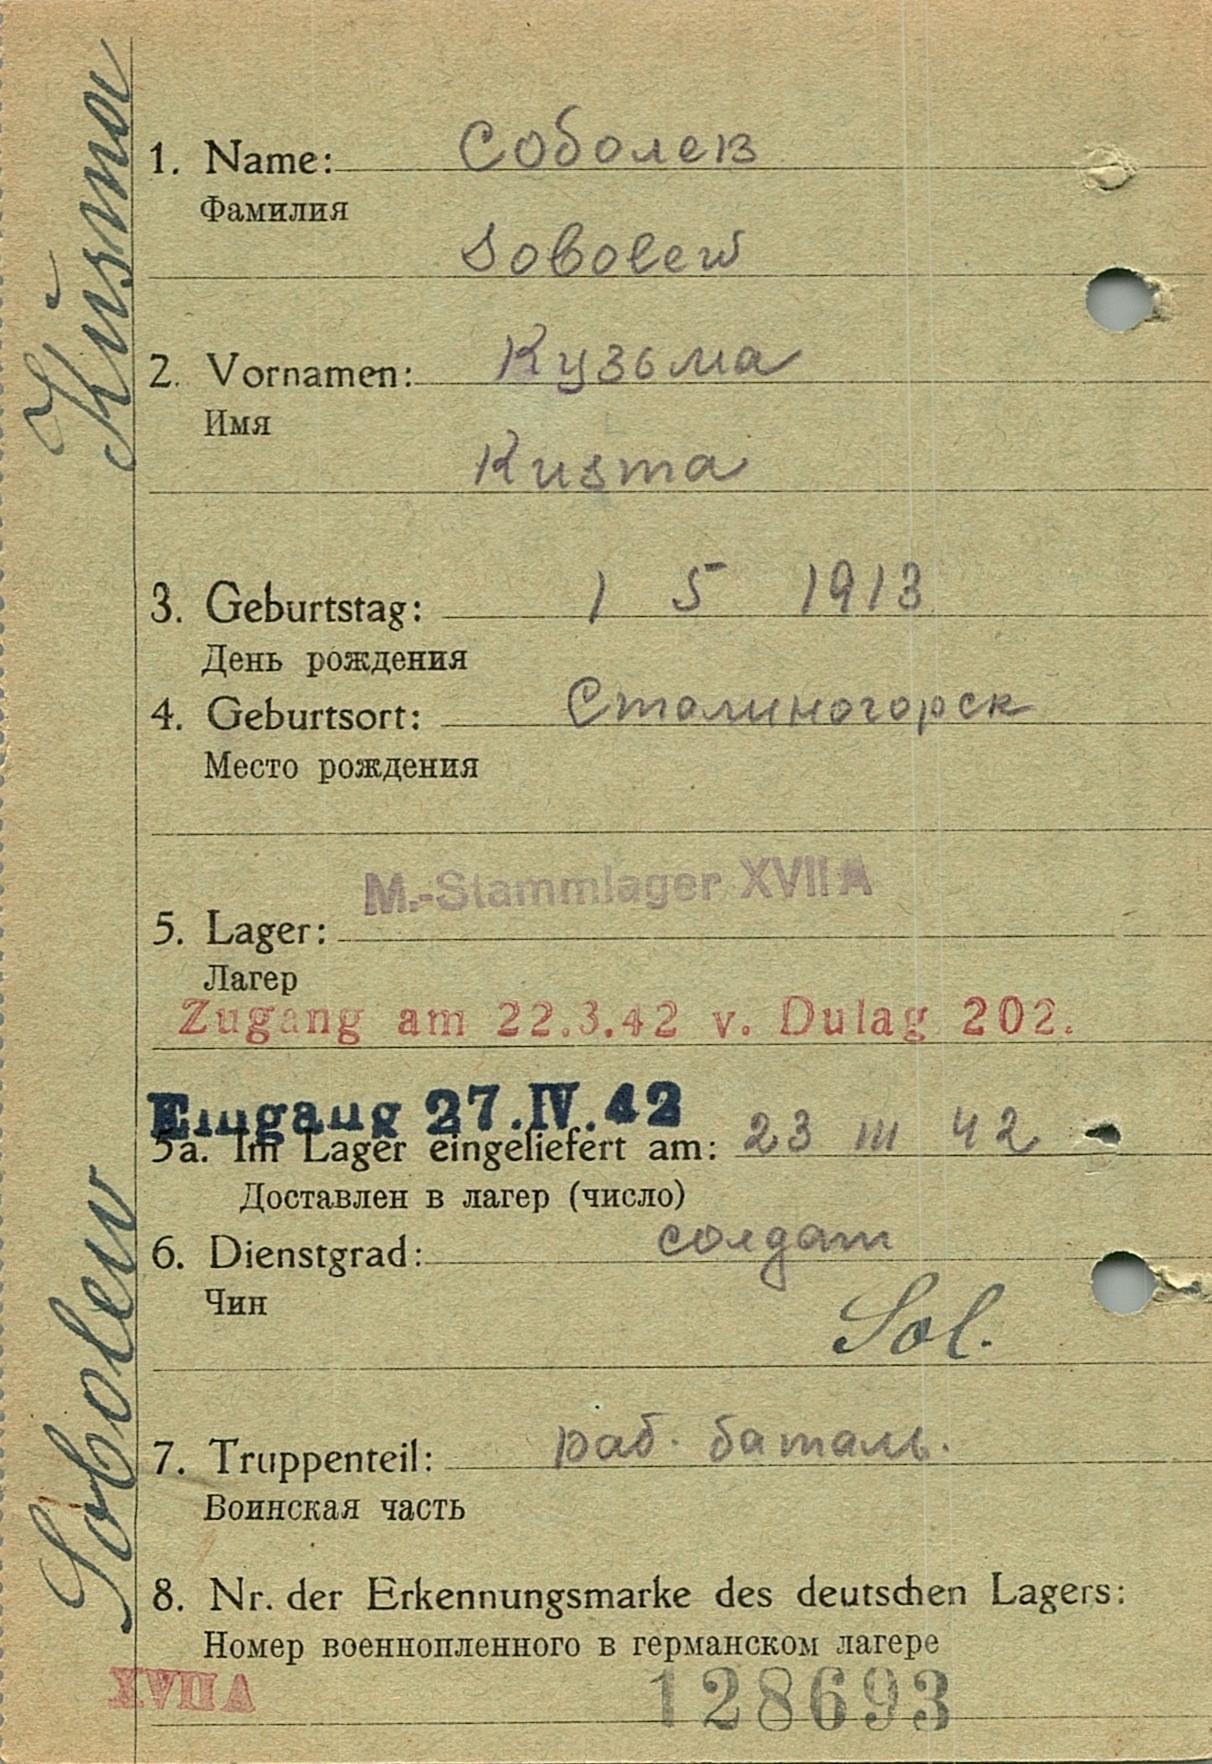 Küsma
Sobolew
1. Name: Соболев
Фамилия
Sobolew
2. Vornamen: Кузьма
Имя
Kusma
3. Geburtstag: 1 5 1913
День рождения
4. Geburtsort: Сталиногорск
Место рождения
M.-Stammlager XVII A
5. Lager:
Лагер
Zugang am 22.3.42 v. Dulag 202.
Eingang 27.IV.42
5a. Im Lager eingeliefert am: 23 III 42
Доставлен в лагер (число)
6. Dienstgrad: солдат
Чин
Sol.
7. Truppenteil: раб. баталь.
Воинская часть
8. Nr. der Erkennungsmarke des deutschen Lagers:
Номер военнопленного в германском лагере
XVII A 128693